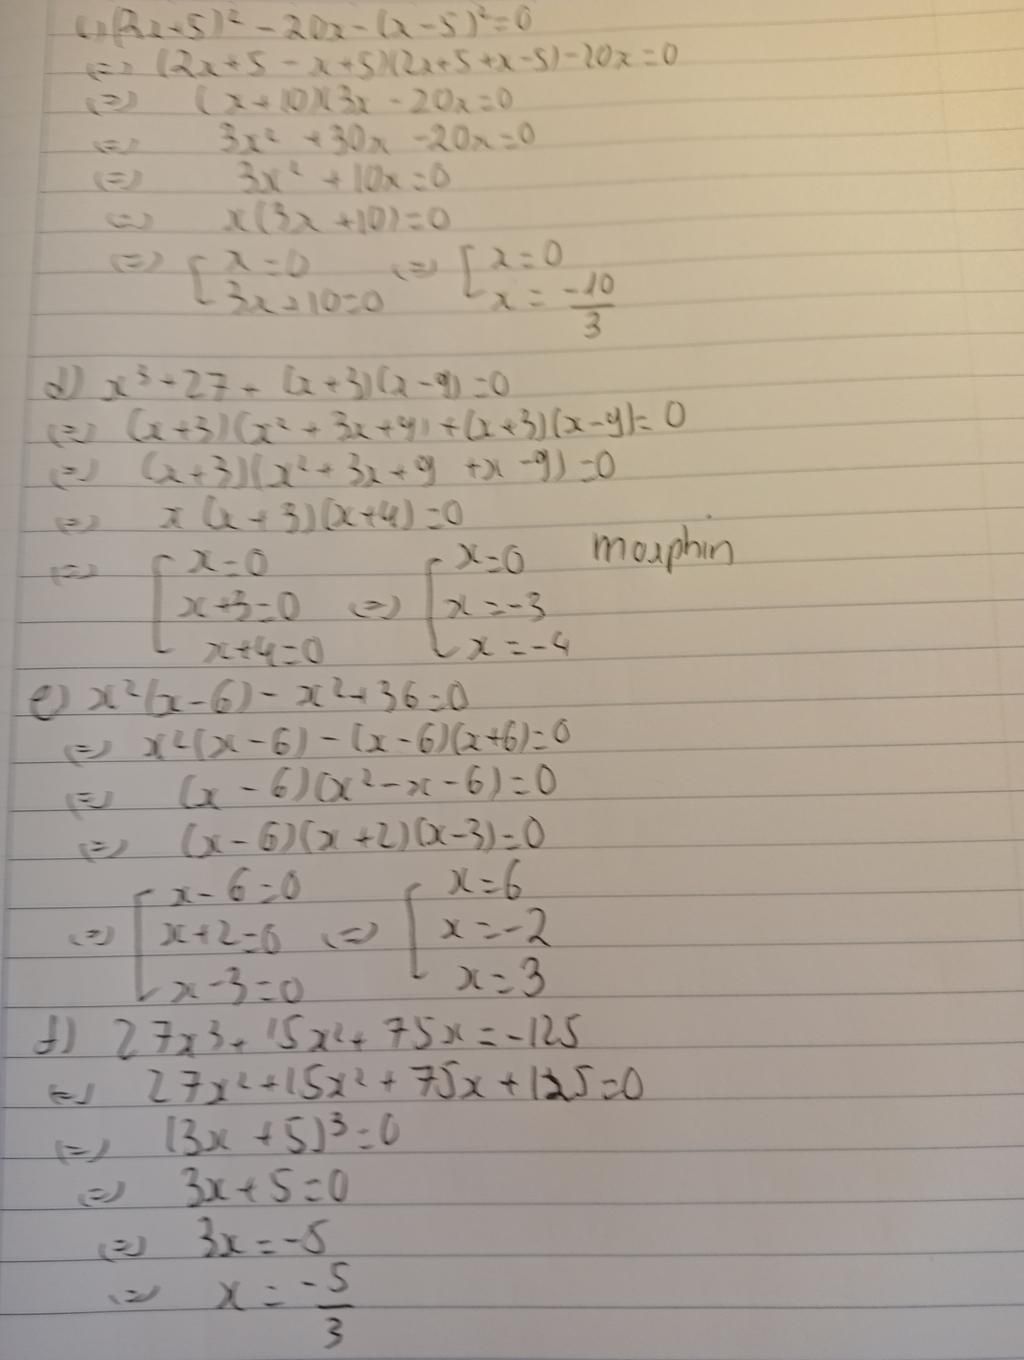 c) (2x+5)² - 20x - (x-5)² = 0
(=) (2x+5 - x+5)(2x+5+x-5) - 20x = 0
(=) (x+10)(3x - 20x = 0
(=) 3x² + 30x - 20x = 0
(=) 3x² + 10x = 0
(=) x(3x+10) = 0
(=) [ x = 0 (=) [ x = 0
3x+10 = 0 x = -10/3
d) x³ + 27 + (x+3)(x-9) = 0
(=) (x+3)(x² + 3x + 9) + (x+3)(x-9) = 0
(=) (x+3)(x² + 3x + 9 + x - 9) = 0
(=) x(x+3)(x+4) = 0
(=) [ x = 0 [ x = 0 morphin
x+3 = 0 (=) x = -3
x+4 = 0 x = -4
e) x²(x-6) - x² + 36 = 0
(=) x²(x-6) - (x-6)(x+6) = 0
(=) (x-6)(x² - x - 6) = 0
(=) (x-6)(x+2)(x-3) = 0
[ x-6 = 0 [ x = 6
(=) x+2 = 0 (=) x = -2
x-3 = 0 x = 3
f) 27x³ + 15x² + 75x = -125
(=) 27x² + 15x² + 75x + 125 = 0
(=) (3x+5)³ = 0
(=) 3x+5 = 0
(=) 3x = -5
(=) x = -5/3